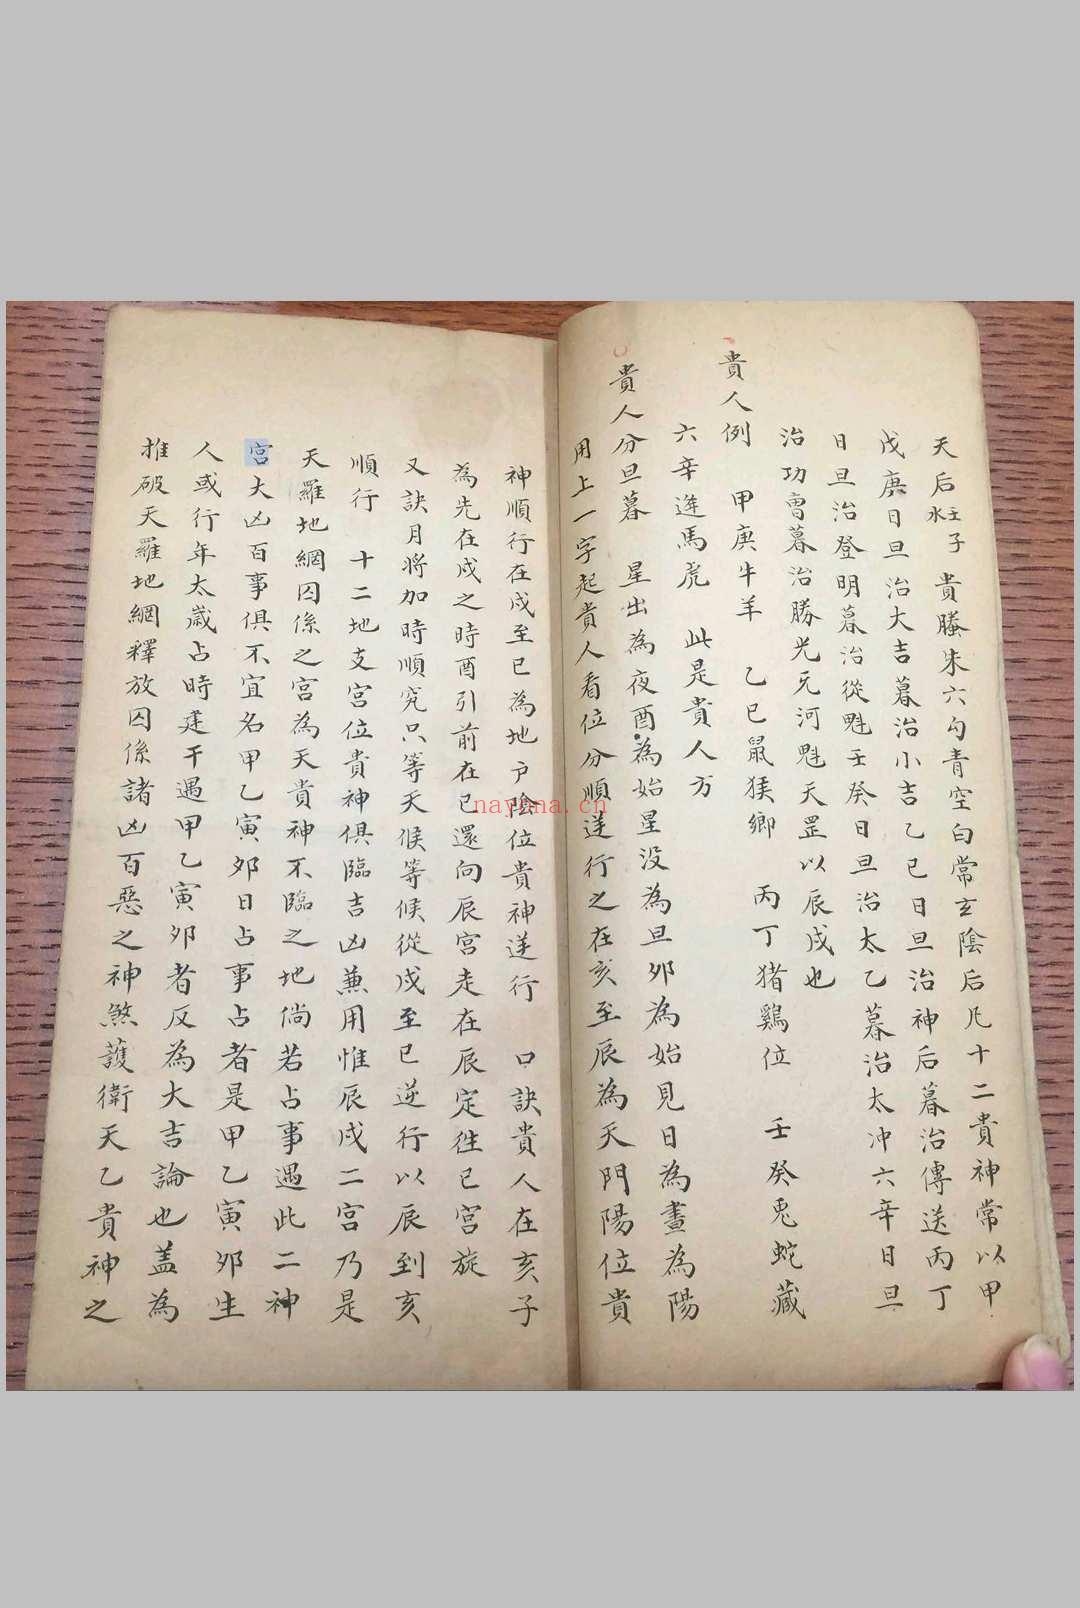 天后水主子 貴螣朱六勾青空白常玄陰后凡十二貴神常以甲
戊庚日旦治大吉暮治小吉乙己日旦治神后暮治傳送丙丁
日旦治登明暮治從魁壬癸日旦治太乙暮治太冲六辛日旦
治功曹暮治勝光兀河魁天罡以辰戌也
貴人例 甲庚牛羊 乙己鼠猴鄉 丙丁猪鷄位 壬癸兎蛇藏
六辛逢馬虎 此是貴人方
貴人分旦暮 星出為夜酉為始星没為旦夘為始見日為晝為陽
用上一字起貴人看位分順逆行之在亥至辰為天門陽位貴
神順行在戌至巳為地户陰位貴神逆行 口訣貴人在亥子
為先在戌之時酉引前在巳還向辰宫走在辰定徃巳宫旋
又訣月將加時順究只等天候等候從戌至巳逆行以辰到亥
順行 十二地支宫位貴神俱臨吉凶兼用惟辰戌二宫乃是
天羅地網囚係之宫為天貴神不臨之地倘若占事遇此二神
宫大凶百事俱不宜名甲乙寅夘日占事占者是甲乙寅夘生
人或行年太歲占時建干遇甲乙寅夘者反為大吉論也盖為
推破天羅地網釋放囚係諸凶百惡之神煞護衛天乙貴神之
nayona.cn